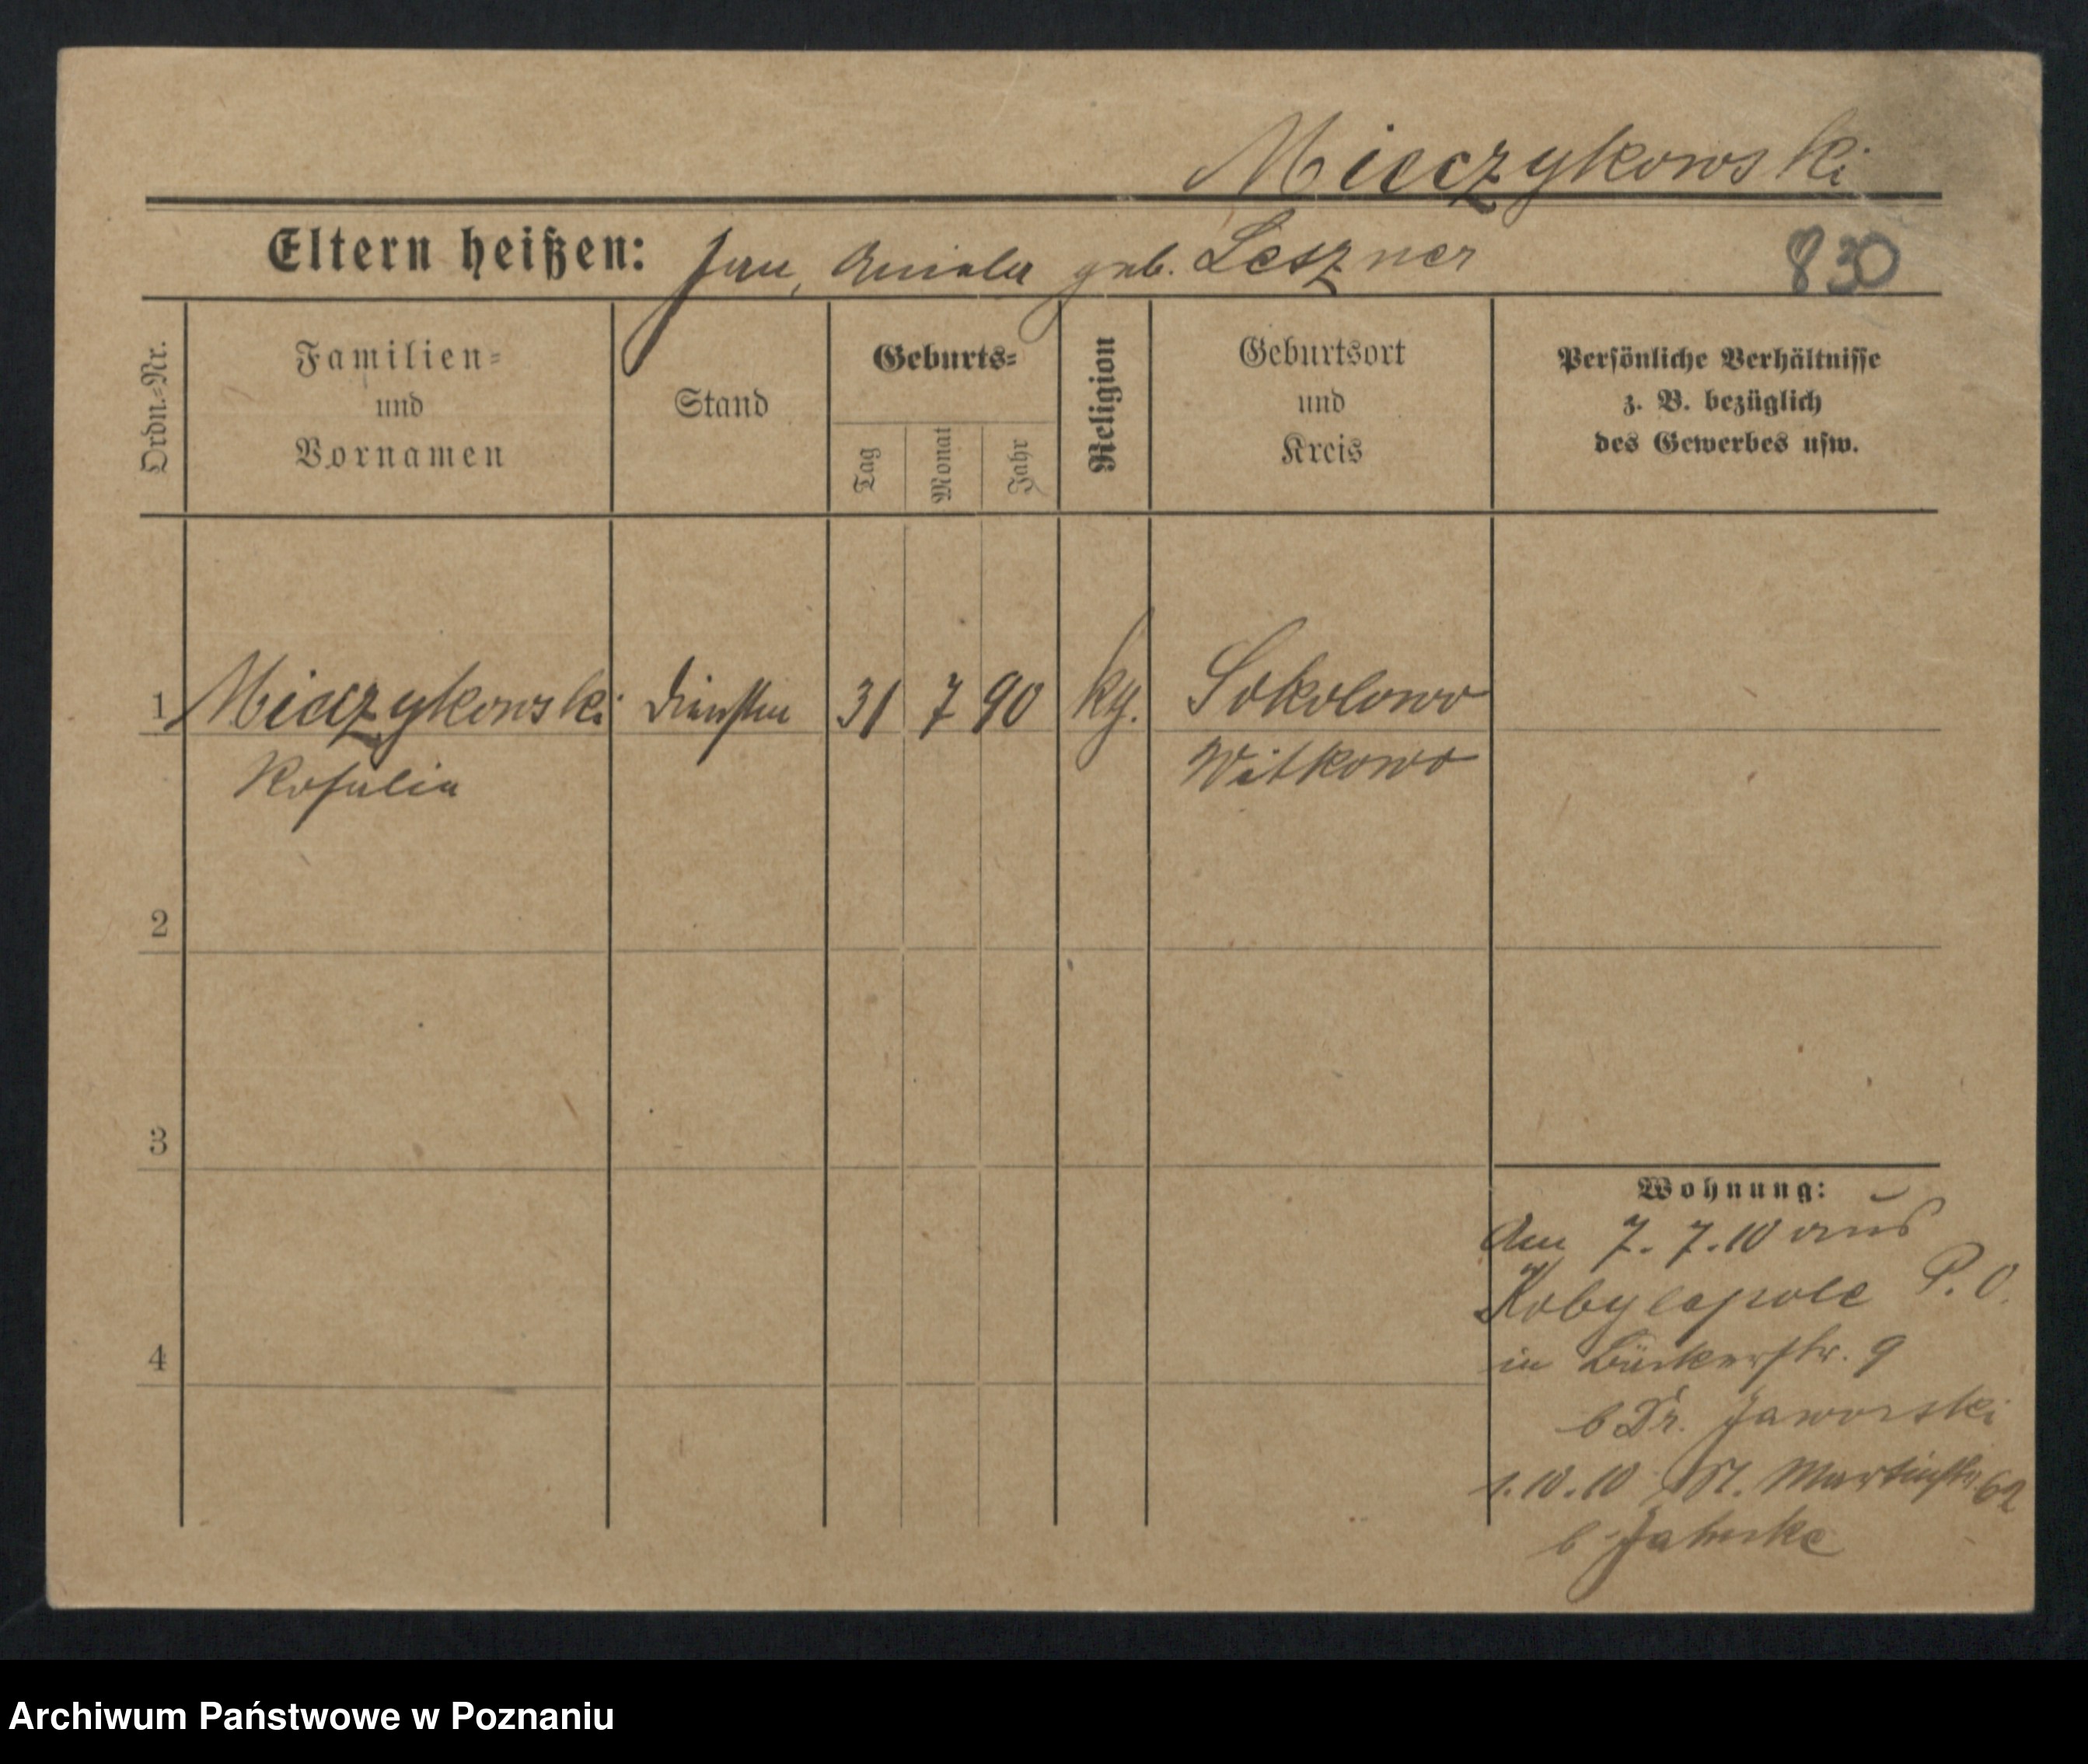 Mieczykowski
Eltern heißen: Jan, Aniela geb. Leszner 830
Ordn.=Nr.
Familien=
und
Vornamen
Stand
Geburts=
Tag
Monat
Jahr
Religion
Geburtsort
und
Kreis
Persönliche Verhältnisse
z. B. bezüglich
des Gewerbes usw.
1 Mieczykowski 31 7 90 kg. Sokolowo
Rosalia Witkowo
2
3
4
Wohnung:
Am 7. 7. 10 aus
Kobylepole P. O.
in Bäckerstr. 9
b Dr. Jaworski
1. 10. 10 St. Martinstr 62
b Jahnke
Archiwum Państwowe w Poznaniu